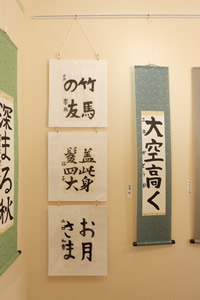 竹馬
の友
蓋此身
髪四大
お月
さま
大空高く
深まる秋